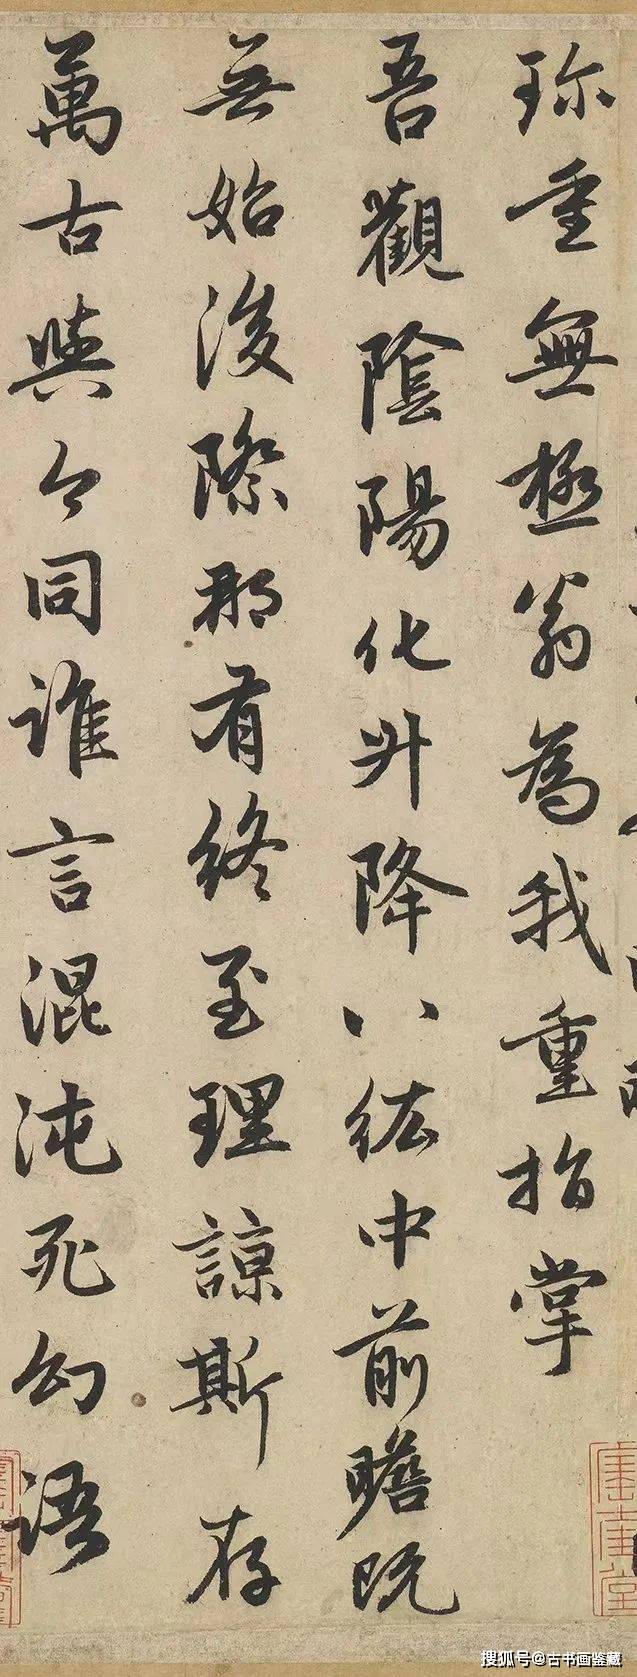 珎重無極翁為我重指掌
吾觀陰陽化升降八紘中前瞻既
無始後際那有終至理諒斯存
萬古與今同誰言混沌死幻語
搜狐号@古书画鉴藏